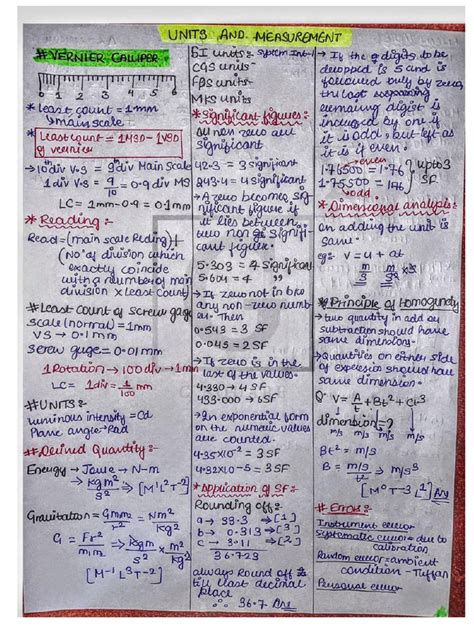 UNITS AND MEASUREMENT
# VERNIER CALLIPER
0 1 2 3 4 5 6
* least count = 1mm
↳ main scale
* Least count = 1MSD - 1VSD
of vernier
→ 10 div V.S = 9 div Main Scale
1 div V.S = 9/10 = 0.9 div MS
LC = 1mm - 0.9 = 0.1mm
* Reading :-
Read = (main scale Reding) +
(No' of division which
exactly coincide
with a number of main
division x least count)
# Least count of screw gage
scale (normal) = 1mm
VS → 0.1 mm
Screw guge = 0.01 mm
1 Rotation → 100 div → 1mm
LC = 1 div = 1/100 mm
# UNITS :-
luminous intensity = Cd
Plane angle = Rad
# Derived Quantity :-
Energy → Joule → N-m
→ kg m²/s² → [M¹L²T⁻²]
Gravitation = Gmm/r² = Nm²/kg²
G = Fr²/m.m → kgm/s² x m²/kg²
[M⁻¹L³T⁻²]
SI units :- System Int-l
CGS units-
FPS units-
MKS units-
* Significant figures :-
All non zero are
significant
42.3 = 3 significant
243.4 = 4 significant
→ A zero becomes sig
nificant figure if
it lies between
two non zero signifi-
cant figure.
5.303 = 4 significant
5.604 = 4 "
→ If zero not in b/w
any non-zero numb
er. Then
0.543 = 3 SF
0.045 = 2 SF
→ If zero is in the
last of the values.
4.330 → 4 SF
433.000 → 6SF
→ In exponential form
on the numeric values
are counted.
4.35x10⁻² = 3 SF
4.32x10⁻⁵ = 3 SF
* Application of SF :-
Rounding off :-
a → 33.3 → [1]
b → 0.313 → [3]
c → 3.11 → [2]
36.723
always Round off
till last decimal
place
∴ 36.7 Ans
→ If the digits to be
dropped is 5 and is
followed only by zeros,
the last
remaing digist is
increed by one if
it is odd, but left as
it is if even.
even
1.76500 = 1.76 upto 3
1.75500 = 176 SF
odd
* Dimensional analysis :-
On adding the unit is
same.
eg:- v = u + at
m/s m/s m/s² x s
# Principle of Homogundy
→ two quantity in add or
subtraction should have
same dimension.
→ Quantities on either side
of expression should have
same dimension.
Q' V = A/t + Bt² + Ct³
dimension = ?
m/s m/s m/s m/s
Bt² = m/s
B = m/s/t² → m/s³
[M⁰T⁻³L¹] Ans
# Errors :-
Instrument error
Systematic error = due to
calibration
Random error = ambient
condition - Tuffan
Personal error